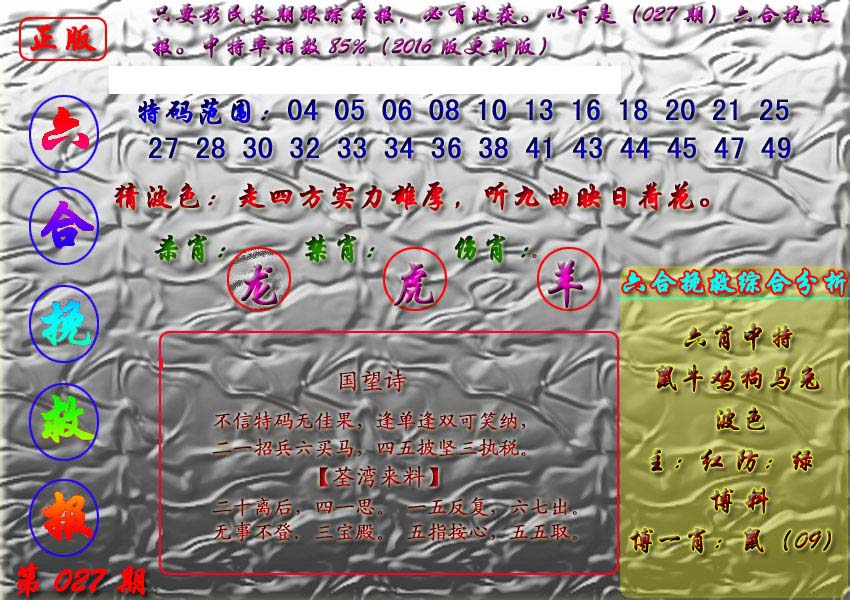 正版
只要彩民长期跟踪本报，必有收获。以下是（027期）六合挽救
报。中特率指数85%（2016版更新版）
六
合
挽
救
报
第027期
特码范围：04 05 06 08 10 13 16 18 20 21 25
27 28 30 32 33 34 36 38 41 43 44 45 47 49
猜波色：走四方实力雄厚，听九曲映日荷花。
杀肖： 禁肖： 伤肖：
龙 虎 羊
国望诗
不信特码无佳果，逢单逢双可笑纳，
二一招兵六买马，四五披坚三执税。
【荃湾来料】
二十离后，四一思。 一五反复，六七出。
无事不登．三宝殿。 五指按心，五五取。
六合挽救综合分析
六肖中特
鼠牛鸡狗马兔
波色
主：红防：绿
博料
博一肖：鼠（09）